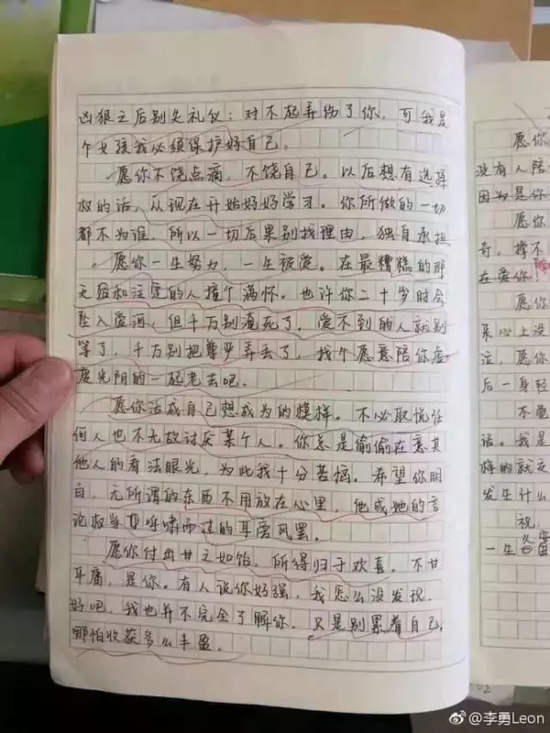 凶狠之后别失礼仪：对不起弄伤了你，可我是
个女孩我必须保护好自己。
愿你不饶点滴，不饶自己。以后想有选择
权的话，从现在开始好好学习。你所做的一切
都不为谁，所以一切后果别找理由，独自承担。
愿你一生努力，一生被爱。在最糟糕的那
天后和注定的人撞个满怀。也许你二十岁时会
坠入爱河，但千万别淹死了，爱不到的人就别
等了，千万别把尊严弄丢了，找个愿意陪你虚
度光阴的一起老去吧。
愿你活成自己想成为的模样。不必取悦任
何人也不无故讨厌某个人。你总是偷偷在意其
他人的看法眼光，为此我十分苦恼。希望你明
白，无所谓的东西不用放在心里，他或她的言
论权当呼啸而过的耳旁风罢。
愿你付出甘之如饴，所得归于欢喜。不甘
平庸，是你。有人说你好强，我怎么没发现。
好吧，我也并不完全了解你。只是别累着自己，
哪怕收获多么丰盈。
愿你
没有人陪
因为是你
愿你
奇，撑不
在爱你
愿你
某心上没
注，愿你
后一身轻
不要
话。我是
样的就交
发生什么
祝：
一生
@李勇Leon